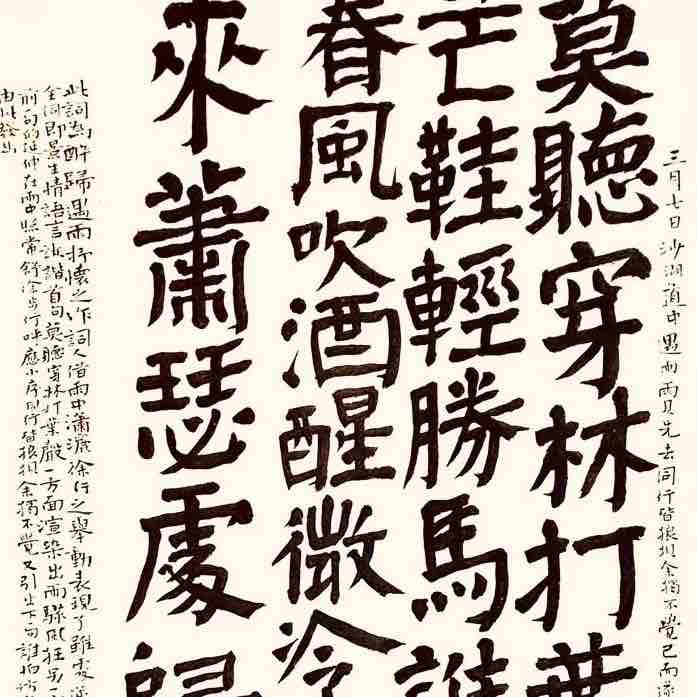 三月七日沙湖道中遇雨雨具先去同行皆狼狽余獨不覺已而遂
莫聽穿林打葉
芒鞋輕勝馬誰
春風吹酒醒微冷
來蕭瑟處歸
此詞為醉歸遇雨抒懷之作詞人借雨中瀟灑徐行之舉動表現了雖處
全詞即景生情語言詼諧首句莫聽穿林打葉聲一方面渲染出雨驟風狂另一
前句的延伸在雨中照常舒徐步行呼應小序同行皆狼狽余獨不覺又引出下句誰怕